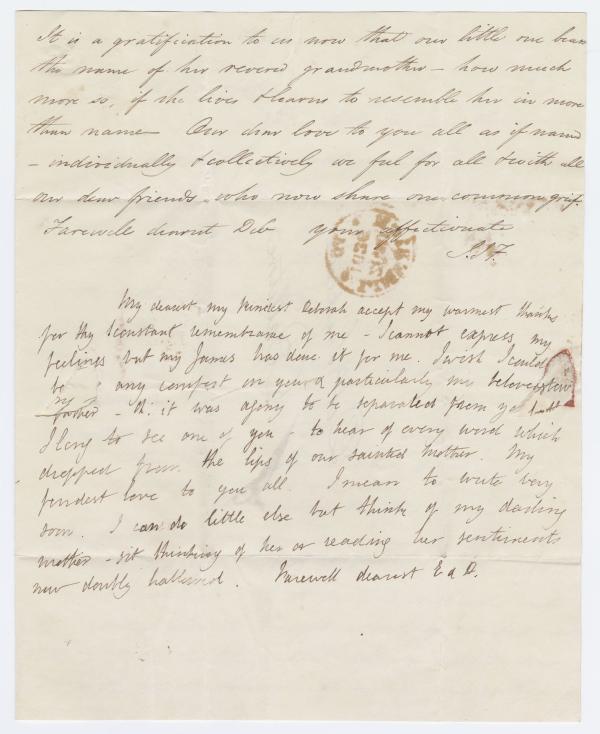 It is a gratification to us now that our little one bears
the name of her revered grandmother – how much
more so, if she lives & learns to resemble her in more
than name – Our dear love to you all as if named
– individually & collectively we feel for all & with all
our dear friends who now share one common grief.
Farewell dearest Deb your affectionate
My dearest my kindest Deborah accept my warmest thanks
for thy constant remembrance of me – I cannot express my
feelings but my James has done it for me. I wish I could
be any comfort on your particularly my beloved
my
father – it was agony to be separated from
I long to see one of you – to hear of every word which
dropped from the lips of our sainted mother. My
fondest love to you all. I mean to write very
soon. I can do little else but think of my darling
mother – sit thinking of her or reading her sentiments
now doubly hallowed. Farewell dearest E & D.